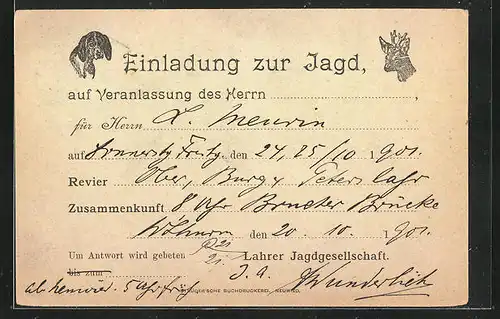 Einladung zur Jagd,
auf Veranlassung des Herrn ,
für Herrn L. Meurin
auf Donnerstg Freitg, den 24, 25/10 1901.
Revier Ober, Burg & Peterslahr
Zusammenkunft 8 Uhr Brucker Brücke
den 20. 10. 1901.
Um Antwort wird gebeten Lahrer Jagdgesellschaft.
bis zum 21. I. A.
ab 5 Uhr früh Wunderlich
BUCHDRUCKEREI, NEUWIED.